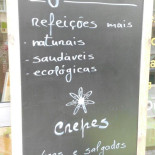 refeições mais
- naturais
- saudáveis
- ecológicas
crepes
e salgados